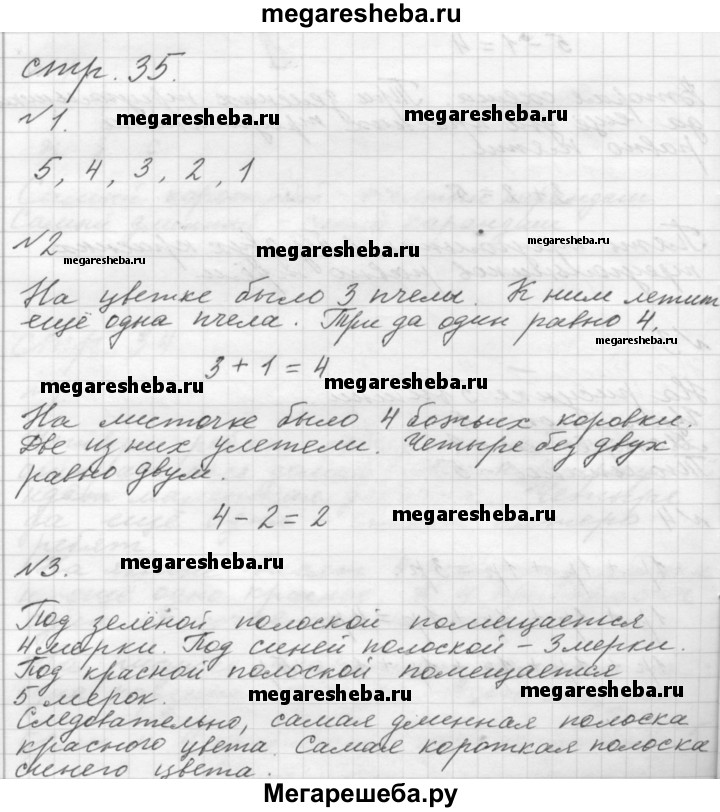 megaresheba.ru
стр. 35.
№1.
megaresheba.ru megaresheba.ru
5, 4, 3, 2, 1
№2
megaresheba.ru megaresheba.ru megaresheba.ru
На цветке было 3 пчелы. К ним летит
ещё одна пчела. Три да один равно 4.
megaresheba.ru
3 + 1 = 4
megaresheba.ru megaresheba.ru
На листочке было 4 божьих коровки.
Две из них улетели. Четыре без двух
равно двум.
4 - 2 = 2
megaresheba.ru
№3.
megaresheba.ru
Под зелёной полоской помещается
4 мерки. Под синей полоской - 3 мерки.
Под красной полоской помещается
5 мерок.
megaresheba.ru megaresheba.ru
Следовательно, самая длинная полоска
красного цвета. Самая короткая полоска
синего цвета.
Мегарешеба.ру